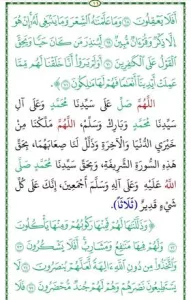 أَفَلَا يَعْقِلُونَ وَمَا عَلَّمْنَٰهُ ٱلشِّعْرَ وَمَا يَنۢبَغِى لَهُۥٓ إِنْ هُوَ
إِلَّا ذِكْرٌ وَقُرْءَانٌ مُّبِينٌ لِّيُنذِرَ مَن كَانَ حَيًّا وَيَحِقَّ
ٱلْقَوْلُ عَلَى ٱلْكَٰفِرِينَ أَوَلَمْ يَرَوْا۟ أَنَّا خَلَقْنَا لَهُم مِّمَّا
عَمِلَتْ أَيْدِينَآ أَنْعَٰمًا فَهُمْ لَهَا مَٰلِكُونَ
اللَّهُمَّ صَلِّ عَلَى سَيِّدِنَا مُحَمَّدٍ وَعَلَى آلِ
سَيِّدِنَا مُحَمَّدٍ وَبَارِكْ وَسَلِّمْ، اللَّهُمَّ مَلِّكْنَا مِنْ
خَيْرَيِ الدُّنْيَا وَالْآخِرَةِ وَذَلِّلْ لَنَا صِعَابَهُمَا، بِحَقِّ
هَذِهِ السُّورَةِ الشَّرِيفَةِ، وَبِحَقِّ سَيِّدِنَا مُحَمَّدٍ صَلَّى
اللهُ عَلَيْهِ وَعَلَى آلِهِ وَسَلَّمَ أَجْمَعِينَ، إِنَّكَ عَلَى كُلِّ
شَيْءٍ قَدِيرٌ (ثَلَاثًا).
وَذَلَّلْنَٰهَا لَهُمْ فَمِنْهَا رَكُوبُهُمْ وَمِنْهَا يَأْكُلُونَ
وَلَهُمْ فِيهَا مَنَٰفِعُ وَمَشَارِبُ أَفَلَا يَشْكُرُونَ
وَٱتَّخَذُوا۟ مِن دُونِ ٱللَّهِ ءَالِهَةً لَّعَلَّهُمْ يُنصَرُونَ لَا
يَسْتَطِيعُونَ نَصْرَهُمْ وَهُمْ لَهُمْ جُندٌ مُّحْضَرُونَ فَلَا